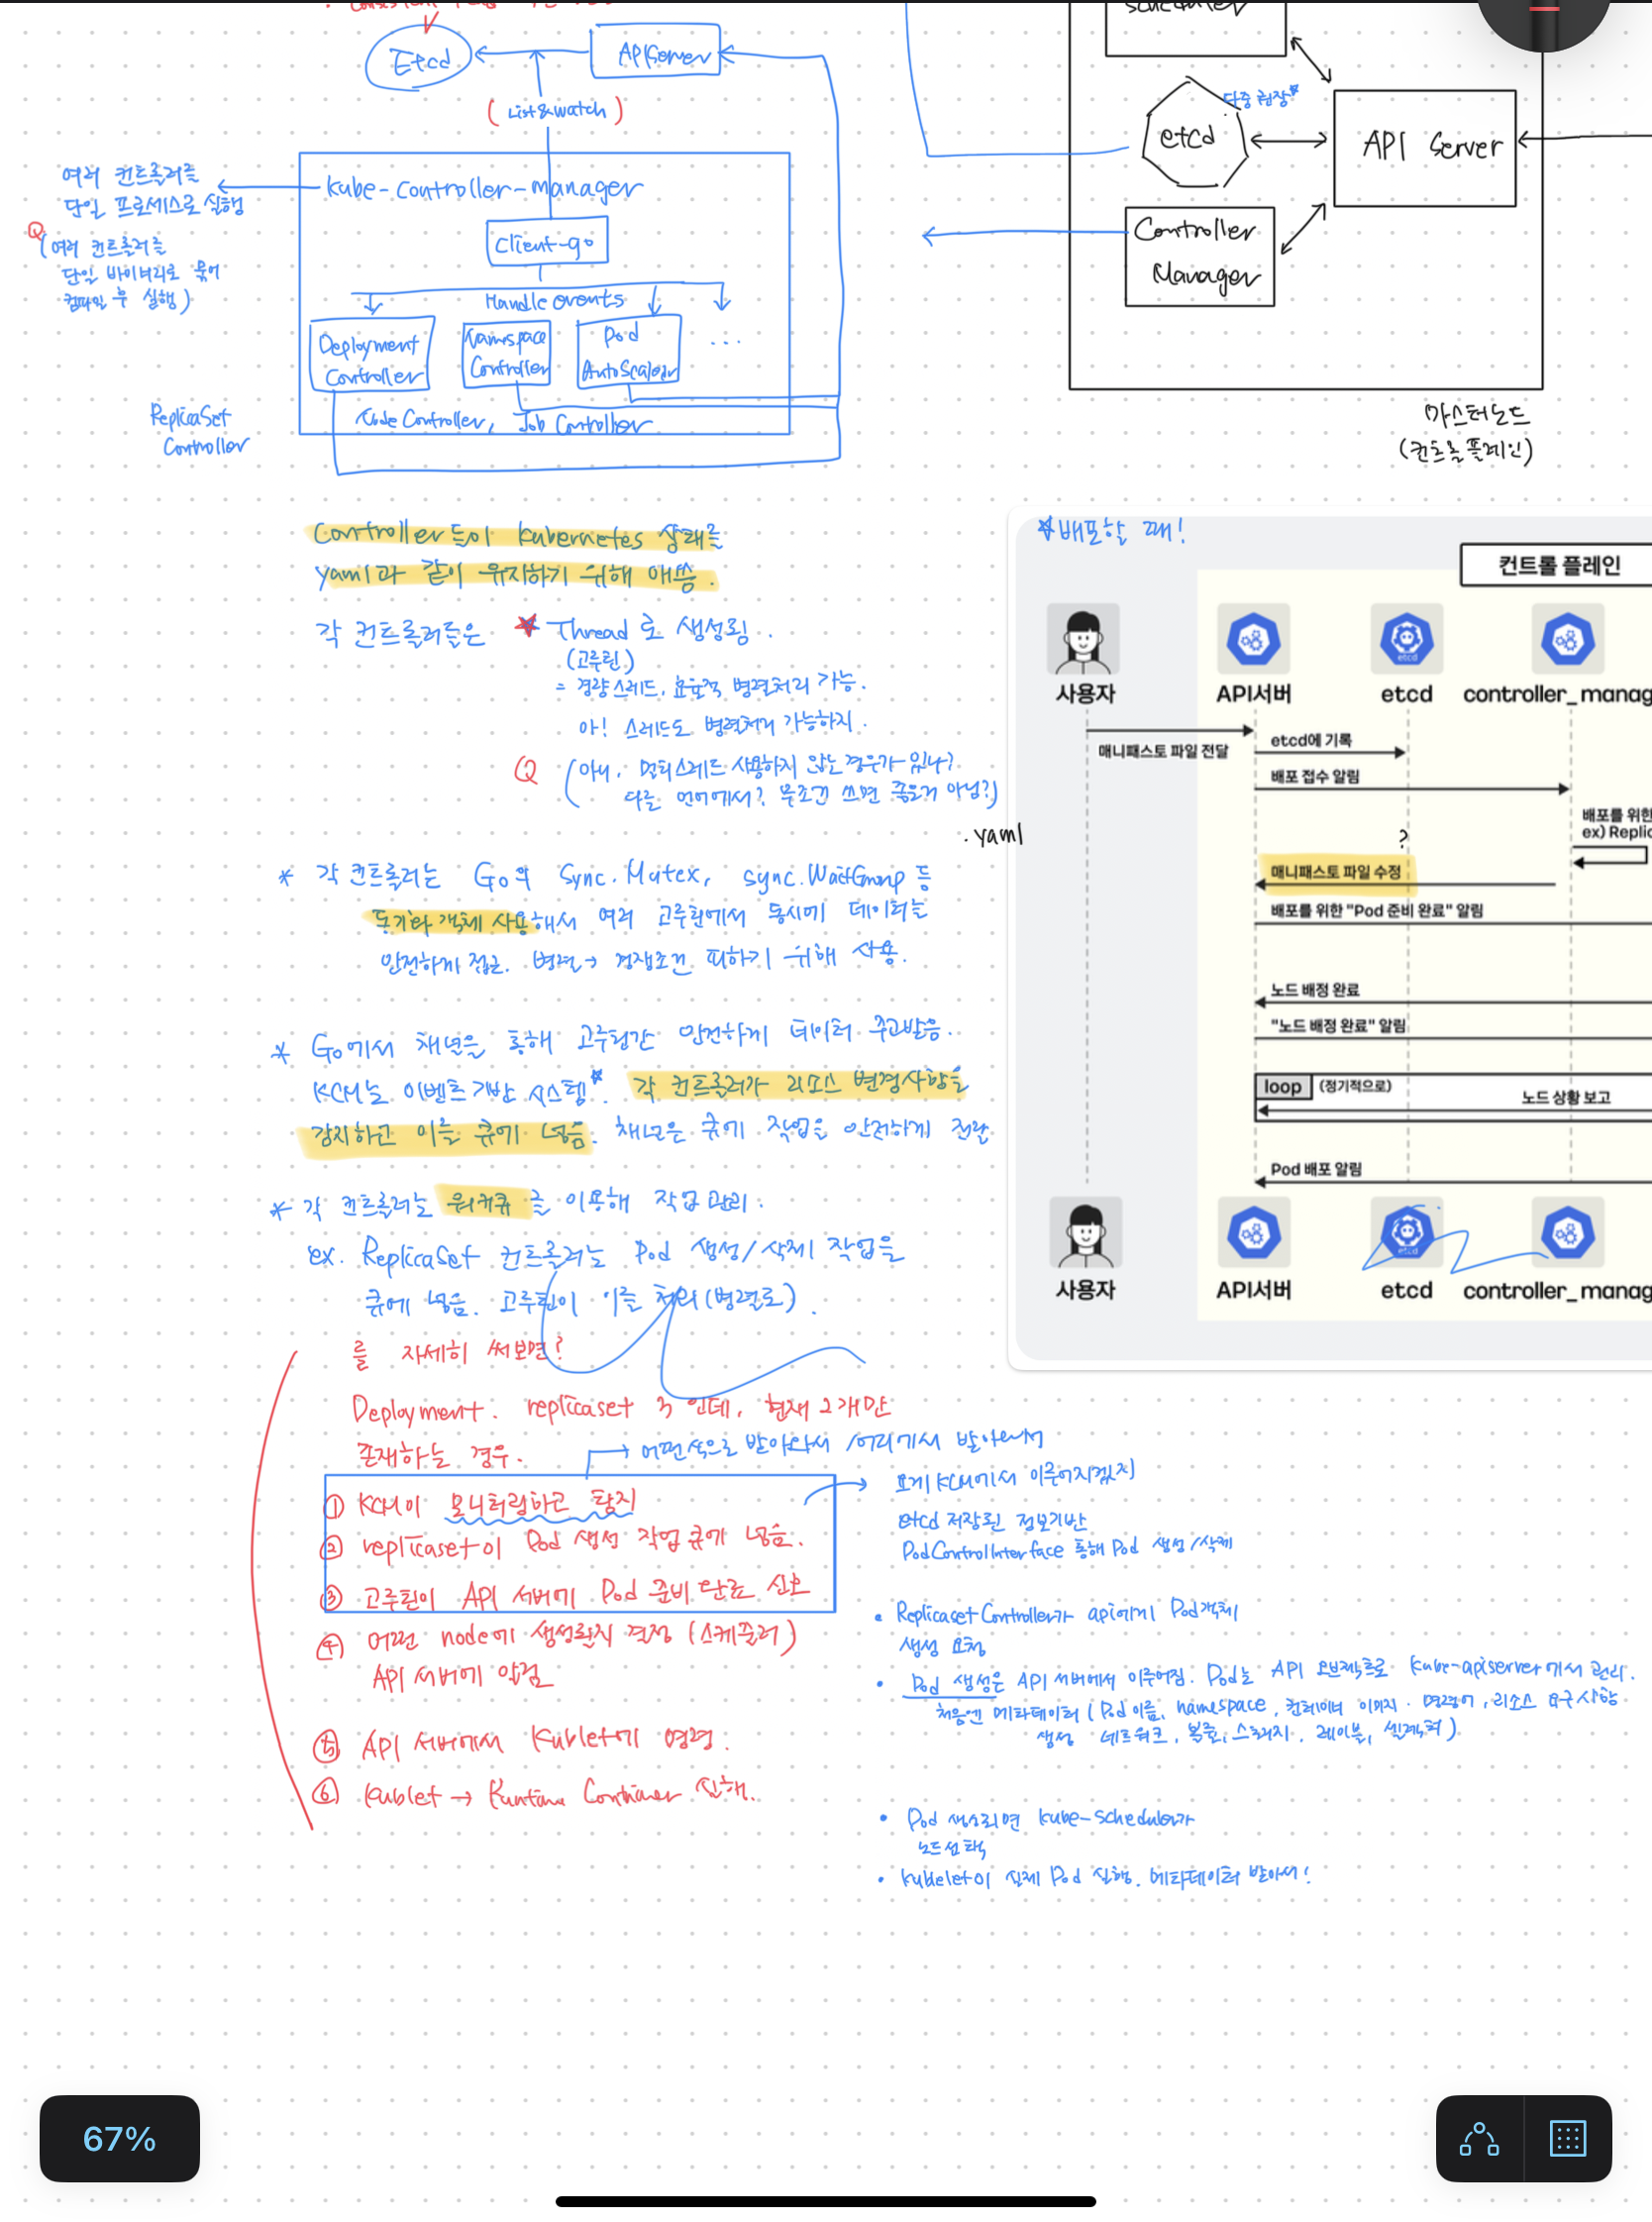 Etcd
APIServer
(List&watch)
여러 컨트롤러를
단일 프로세스로 실행
Q
(여러 컨트롤러를
단일 바이너리로 묶어
컴파일 후 실행)
kube-controller-manager
Client-go
Handle events
Deployment
Controller
Namespace
Controller
Pod
AutoScaler
...
Node Controller, Job Controller
ReplicaSet
Controller
etcd
다중 권장
API Server
Controller
Manager
마스터노드
(컨트롤플레인)
Controller들이 kubernetes 상태를
yaml과 같이 유지하기 위해 애씀.
각 컨트롤러들은 ★ Thread로 생성됨.
(고루틴)
= 경량스레드, 효율적 병렬처리 가능.
아! 스레드도 병렬처리 가능하지.
Q (아니, 멀티스레드 사용하지 않는 경우가 있나?
다른 언어에서? 무조건 쓰면 좋은거 아님?)
* 각 컨트롤러는 Go의 Sync.Mutex, sync.WaitGroup 등
동기화 객체 사용해서 여러 고루틴에서 동시에 데이터를
안전하게 접근. 병렬→ 경쟁조건 피하기 위해 사용.
* Go에서 채널을 통해 고루틴간 안전하게 데이터 주고받음.
KCM는 이벤트기반 시스템*. 각 컨트롤러가 리소스 변경사항을
감지하고 이를 큐에 넣음. 채널은 큐에 작업을 안전하게 전달
* 각 컨트롤러는 워커큐를 이용해 작업관리.
ex. ReplicaSet 컨트롤러는 Pod 생성/삭제 작업을
큐에 넣음. 고루틴이 이를 처리(병렬로).
를 자세히 써보면?
Deployment. replicaset 3인데, 현재 2개만
존재하는 경우.
→ 어떤식으로 받아와서 /어디에서 받아와서
① KCM이 모니터링하고 탐지
② replicaset이 Pod 생성 작업 큐에 넣음.
③ 고루틴이 API 서버에 Pod 준비 완료 신호
④ 어떤 node에 생성될지 결정 (스케쥴러)
API 서버에 알림
⑤ API 서버에서 Kublet에 명령.
⑥ Kublet → Runtime Container 실행.
요게 KCM에서 이루어지겠지
etcd 저장된 정보기반
PodControlInterface 통해 Pod 생성/삭제
• Replicaset Controller가 api에게 Pod객체
생성 요청
• Pod 생성은 API 서버에서 이루어짐. Pod는 API 오브젝트로 kube-apiserver에서 관리.
처음엔 메타데이터 (Pod 이름, namespace, 컨테이너 이미지. 명령어, 리소스 요구사항
생성 네트워크, 볼륨, 스토리지, 레이블, 셀렉터)
• Pod 생성되면 kube-scheduler가
노드선택
• kubelet이 실제 Pod 실행. 메타데이터 받아서!
★배포할 때!
컨트롤 플레인
사용자
API서버
etcd
controller_manag
매니패스토 파일 전달
etcd에 기록
배포 접수 알림
배포를 위한
ex) Replic
. yaml
?
매니패스토 파일 수정
배포를 위한 "Pod 준비 완료" 알림
노드 배정 완료
"노드 배정 완료" 알림
loop (정기적으로)
노드 상황 보고
Pod 배포 알림
사용자
API서버
etcd
controller_manag
67%